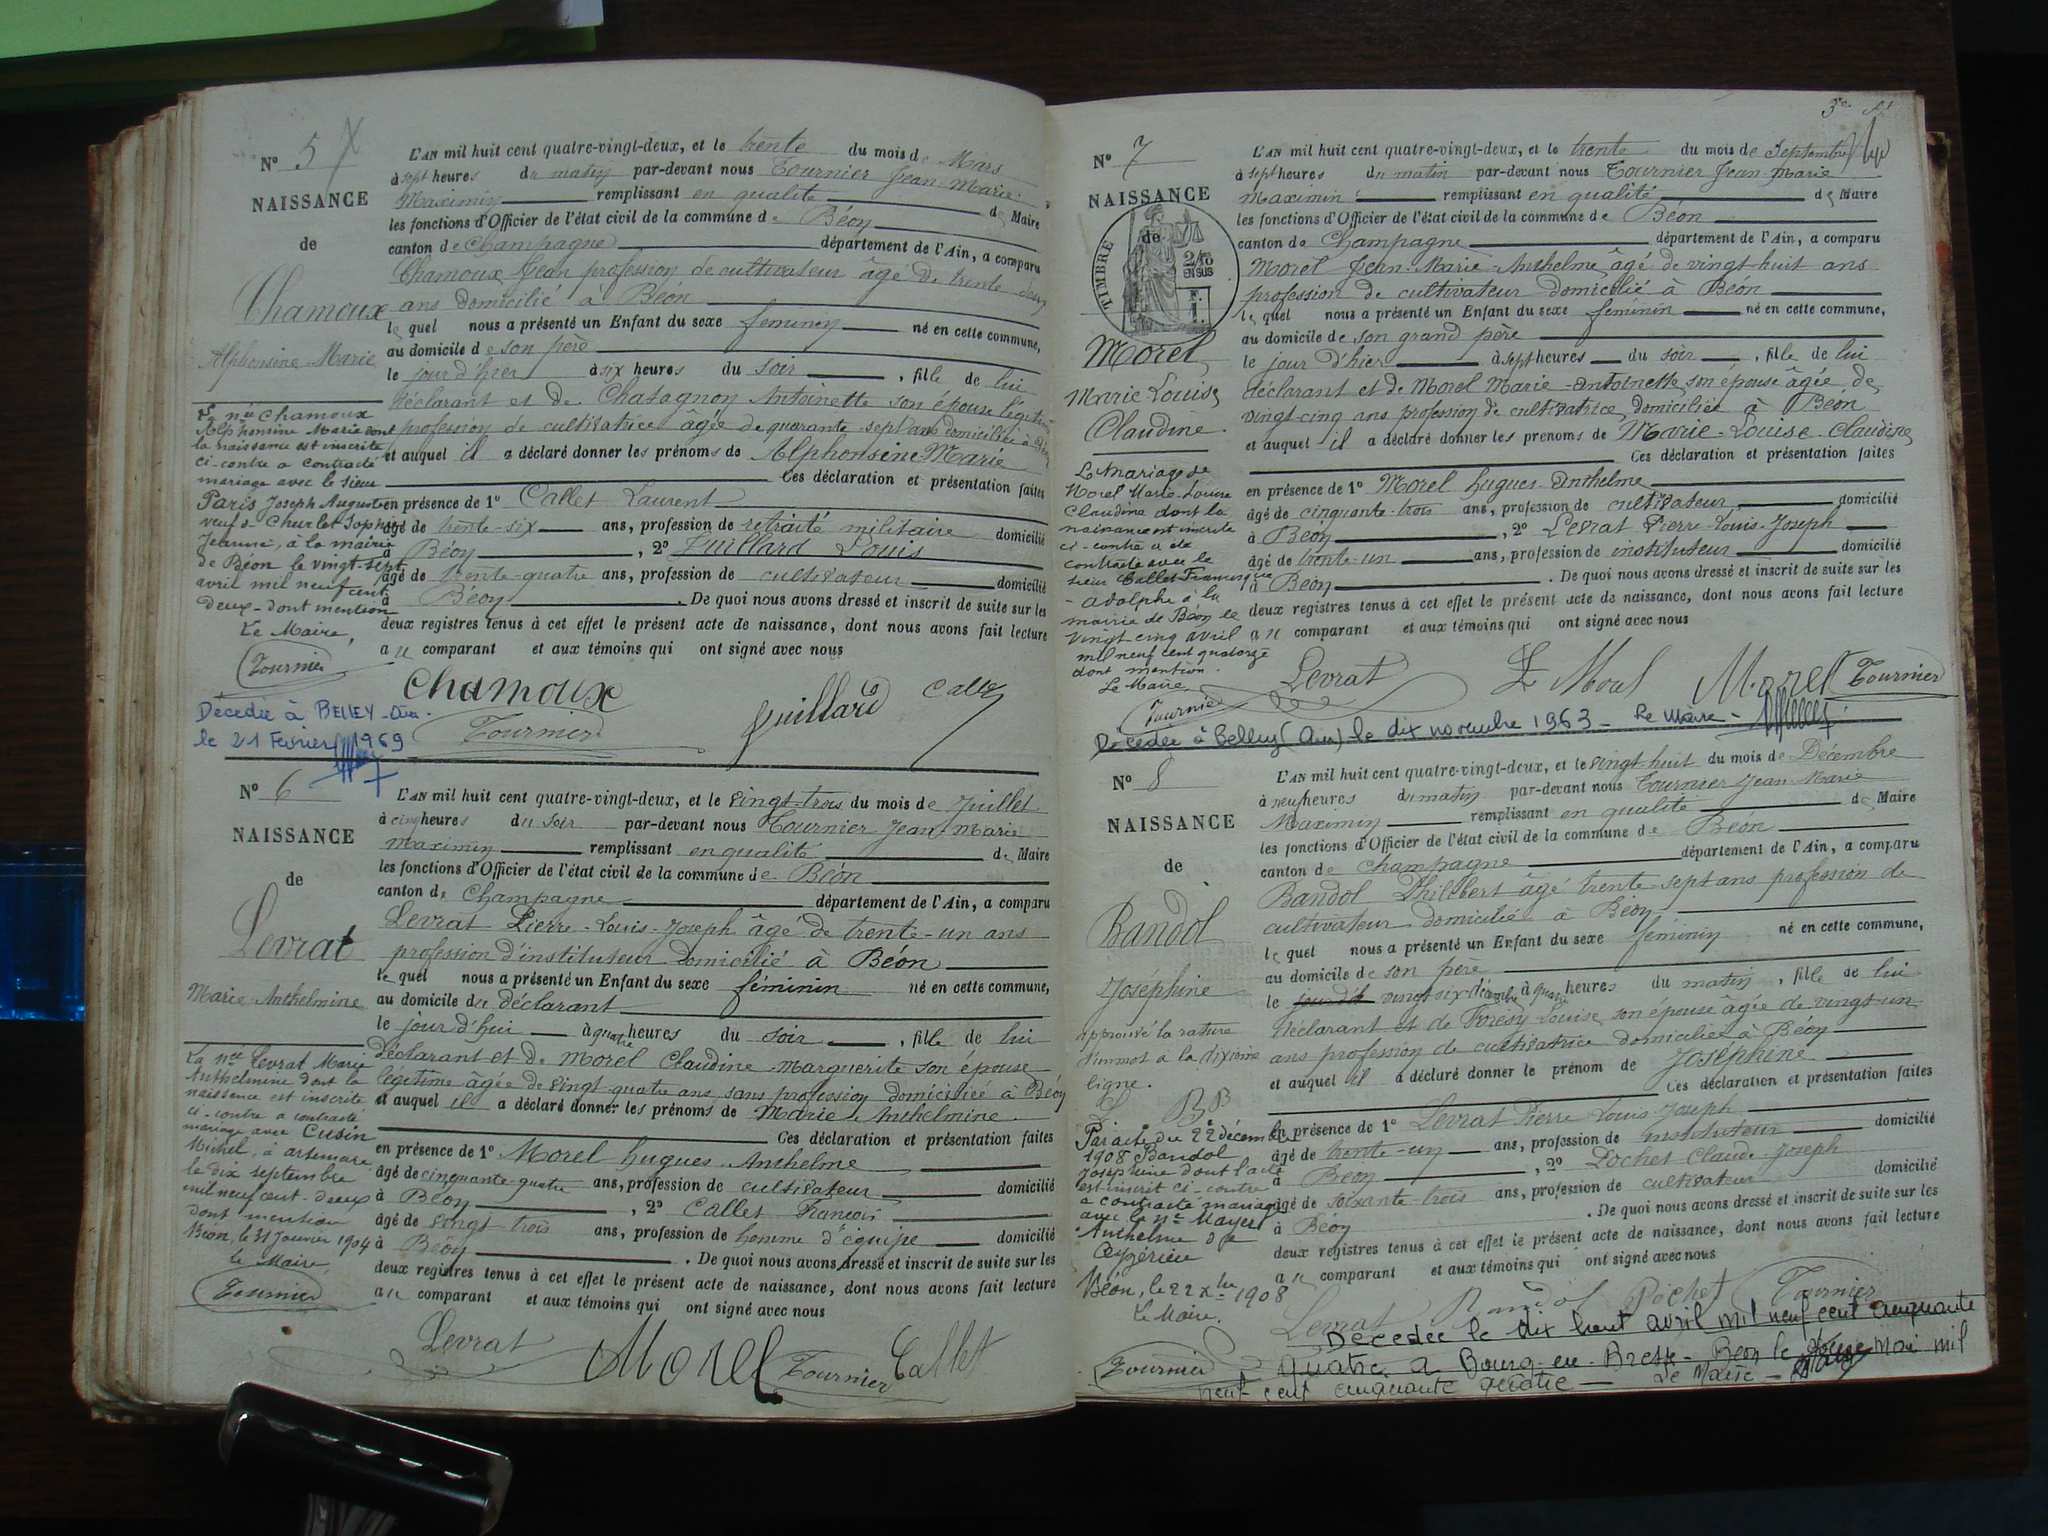 N° 5
NAISSANCE
de
Chamoux
Alphonsine Marie
La née Chamoux
Alphonsine Marie dont
la naissance est inscrite
ci-contre a contracté
mariage avec le sieur
Paris Joseph Auguste
veuf de Churlet Sophie
Jeanne, à la mairie
de Béon le vingt-sept
avril mil neuf cent
deux - dont mention
Le Maire,
Tournier
Décédée à BELLEY - Ain.
le 21 Février 1969
L'AN mil huit cent quatre-vingt-deux, et le trente du mois de Mars
à sept heures du matin par-devant nous Tournier Jean-Marie
Maximin remplissant en qualité de Maire
les fonctions d'Officier de l'état civil de la commune de Béon
canton de Champagne département de l'Ain, a comparu
Chamoux Jean profession de cultivateur âgé de trente-deux
ans domicilié à Béon
lequel nous a présenté un Enfant du sexe féminin né en cette commune,
au domicile de son père
le jour d'hier à six heures du soir, fille de lui
déclarant et de Chatagnon Antoinette son épouse légitime
profession de cultivatrice âgée de quarante-sept ans domiciliée à Béon
et auquel il a déclaré donner les prénoms de Alphonsine Marie
Ces déclaration et présentation faites
en présence de 1° Callet Laurent
âgé de trente-six ans, profession de retraité militaire domicilié
à Béon, 2° Vuillard Louis
âgé de trente-quatre ans, profession de cultivateur domicilié
à Béon. De quoi nous avons dressé et inscrit de suite sur les
deux registres tenus à cet effet le présent acte de naissance, dont nous avons fait lecture
au comparant et aux témoins qui ont signé avec nous
Chamoux Vuillard Callet
Tournier
N° 6
NAISSANCE
de
Levrat
Marie Anthelmine
La née Levrat Marie
Anthelmine dont la
naissance est inscrite
ci-contre a contracté
mariage avec Cusin
Michel, à artemare
le dix septembre
mil neuf cent-deux
dont mention
Béon, le 31 Janvier 1904
le Maire
Tournier
L'AN mil huit cent quatre-vingt-deux, et le vingt-trois du mois de Juillet
à cinq heures du soir par-devant nous Tournier Jean-Marie
Maximin remplissant en qualité de Maire
les fonctions d'Officier de l'état civil de la commune de Béon
canton de Champagne département de l'Ain, a comparu
Levrat Pierre-Louis-Joseph âgé de trente-un ans
profession d'instituteur domicilié à Béon
lequel nous a présenté un Enfant du sexe féminin né en cette commune,
au domicile du déclarant
le jour d'hui à quatre heures du soir, fille de lui
déclarant et de Morel Claudine-Marguerite son épouse
légitime âgée de vingt-quatre ans, sans profession domiciliée à Béon
et auquel il a déclaré donner les prénoms de Marie Anthelmine
Ces déclaration et présentation faites
en présence de 1° Morel Hugues-Anthelme
âgé de cinquante-quatre ans, profession de cultivateur domicilié
à Béon, 2° Callet François
âgé de vingt-trois ans, profession de homme d'équipe domicilié
à Béon. De quoi nous avons dressé et inscrit de suite sur les
deux registres tenus à cet effet le présent acte de naissance, dont nous avons fait lecture
au comparant et aux témoins qui ont signé avec nous
Levrat Morel Tournier Callet
N° 7
NAISSANCE
de
TIMBRE
2/10
EN SUS
F.
1.
Morel
Marie Louise
Claudine
Le Mariage de
Morel Marie-Louise
Claudine dont la
naissance est inscrite
ci-contre a été
contracté avec le
sieur Callet Francisque
-adolphe à la
mairie de Béon le
vingt cinq avril
mil neuf cent quatorze
dont mention.
Le Maire
Tournier
L'AN mil huit cent quatre-vingt-deux, et le trente du mois de Septembre
à sept heures du matin par-devant nous Tournier Jean-Marie
Maximin remplissant en qualité de Maire
les fonctions d'Officier de l'état civil de la commune de Béon
canton de Champagne département de l'Ain, a comparu
Morel Jean-Marie-Anthelme âgé de vingt-huit ans
profession de cultivateur domicilié à Béon
lequel nous a présenté un Enfant du sexe féminin né en cette commune,
au domicile de son grand père
le jour d'hier à sept heures du soir, fille de lui
déclarant et de Morel Marie-Antoinette son épouse âgée de
vingt-cinq ans profession de cultivatrice domiciliée à Béon
et auquel il a déclaré donner les prenoms de Marie-Louise-Claudine
Ces déclaration et présentation faites
en présence de 1° Morel Hugues-Anthelme
âgé de cinquante-trois ans, profession de cultivateur domicilié
à Béon, 2° Levrat Pierre-Louis-Joseph
âgé de trente-un ans, profession de instituteur domicilié
à Béon. De quoi nous avons dressé et inscrit de suite sur les
deux registres tenus à cet effet le présent acte de naissance, dont nous avons fait lecture
au comparant et aux témoins qui ont signé avec nous
Levrat Morel Tournier
Décédée à Belley (Ain) le dix novembre 1963 - Le Maire -
N° 8
NAISSANCE
de
Bandol
Joséphine
approuvé la rature
d'un mot à la dixième
ligne.
Par acte du 22 décembre
1908 Bandol
Joséphine dont l'acte
est inscrit ci-contre
a contracté mariage
avec le né Mayer
Anthelme de
Ceyzérieu
Béon, le 22 Xbre 1908
Le Maire.
Tournier
L'AN mil huit cent quatre-vingt-deux, et le vingt-huit du mois de Décembre
à neuf heures du matin par-devant nous Tournier Jean-Marie
Maximin remplissant en qualité de Maire
les fonctions d'Officier de l'état civil de la commune de Béon
canton de Champagne département de l'Ain, a comparu
Bandol Philibert âgé trente sept ans profession de
cultivateur domicilié à Béon
lequel nous a présenté un Enfant du sexe féminin né en cette commune,
au domicile de son père
le vingt-six décembre à quatre heures du matin, fille de lui
déclarant et de Louise son épouse âgée de vingt-un
ans profession de cultivatrice domiciliée à Béon
et auquel il a déclaré donner le prénom de Joséphine
Ces déclaration et présentation faites
en présence de 1° Levrat Pierre Louis-Joseph
âgé de trente-un ans, profession de instituteur domicilié
à Béon, 2° Pochet Claude-Joseph
âgé de soixante-trois ans, profession de cultivateur domicilié
à Béon. De quoi nous avons dressé et inscrit de suite sur les
deux registres tenus à cet effet le présent acte de naissance, dont nous avons fait lecture
au comparant et aux témoins qui ont signé avec nous
Levrat Bandol Pochet Tournier
Décédée le dix huit avril mil neuf cent cinquante
quatre à Bourg-en-Bresse - Béon le douze Mai mil
neuf cent cinquante quatre - Le Maire -